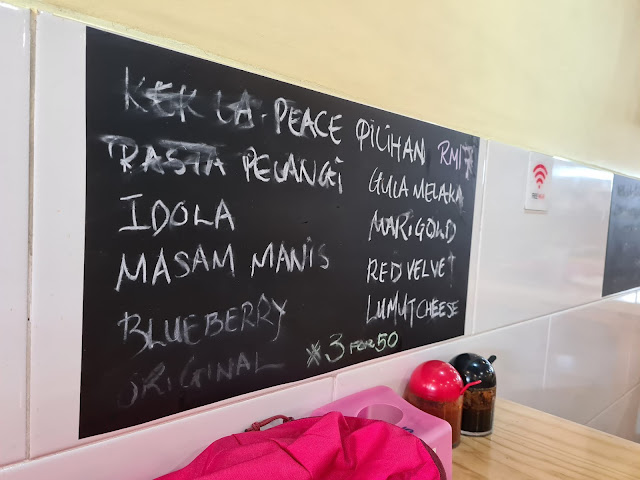 KEK LA. PEACE PILIHAN RM17
RASTA PELANGI
IDOLA
MASAM MANIS
BLUEBERRY
ORIGINAL
GULA MELAKA
MARIGOLD
RED VELVET
LUMUT CHEESE
*3 FOR 50